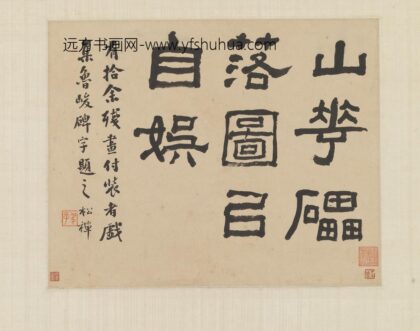 远方书画网-www.yfshuhua.com
山華礧
落圖㠯
自娱
有拾余殘畫付裝者戲
集魯峻碑字題之 松禪